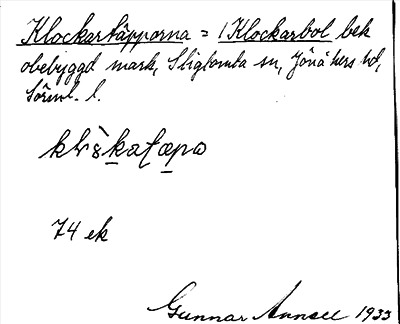 Klockartäpporna = 1 Klockarbol bek
obebyggd mark, Stigtomta sn, Jönåkers hd,
Söderml. l.
74 ek
Gunnar Annell 1933